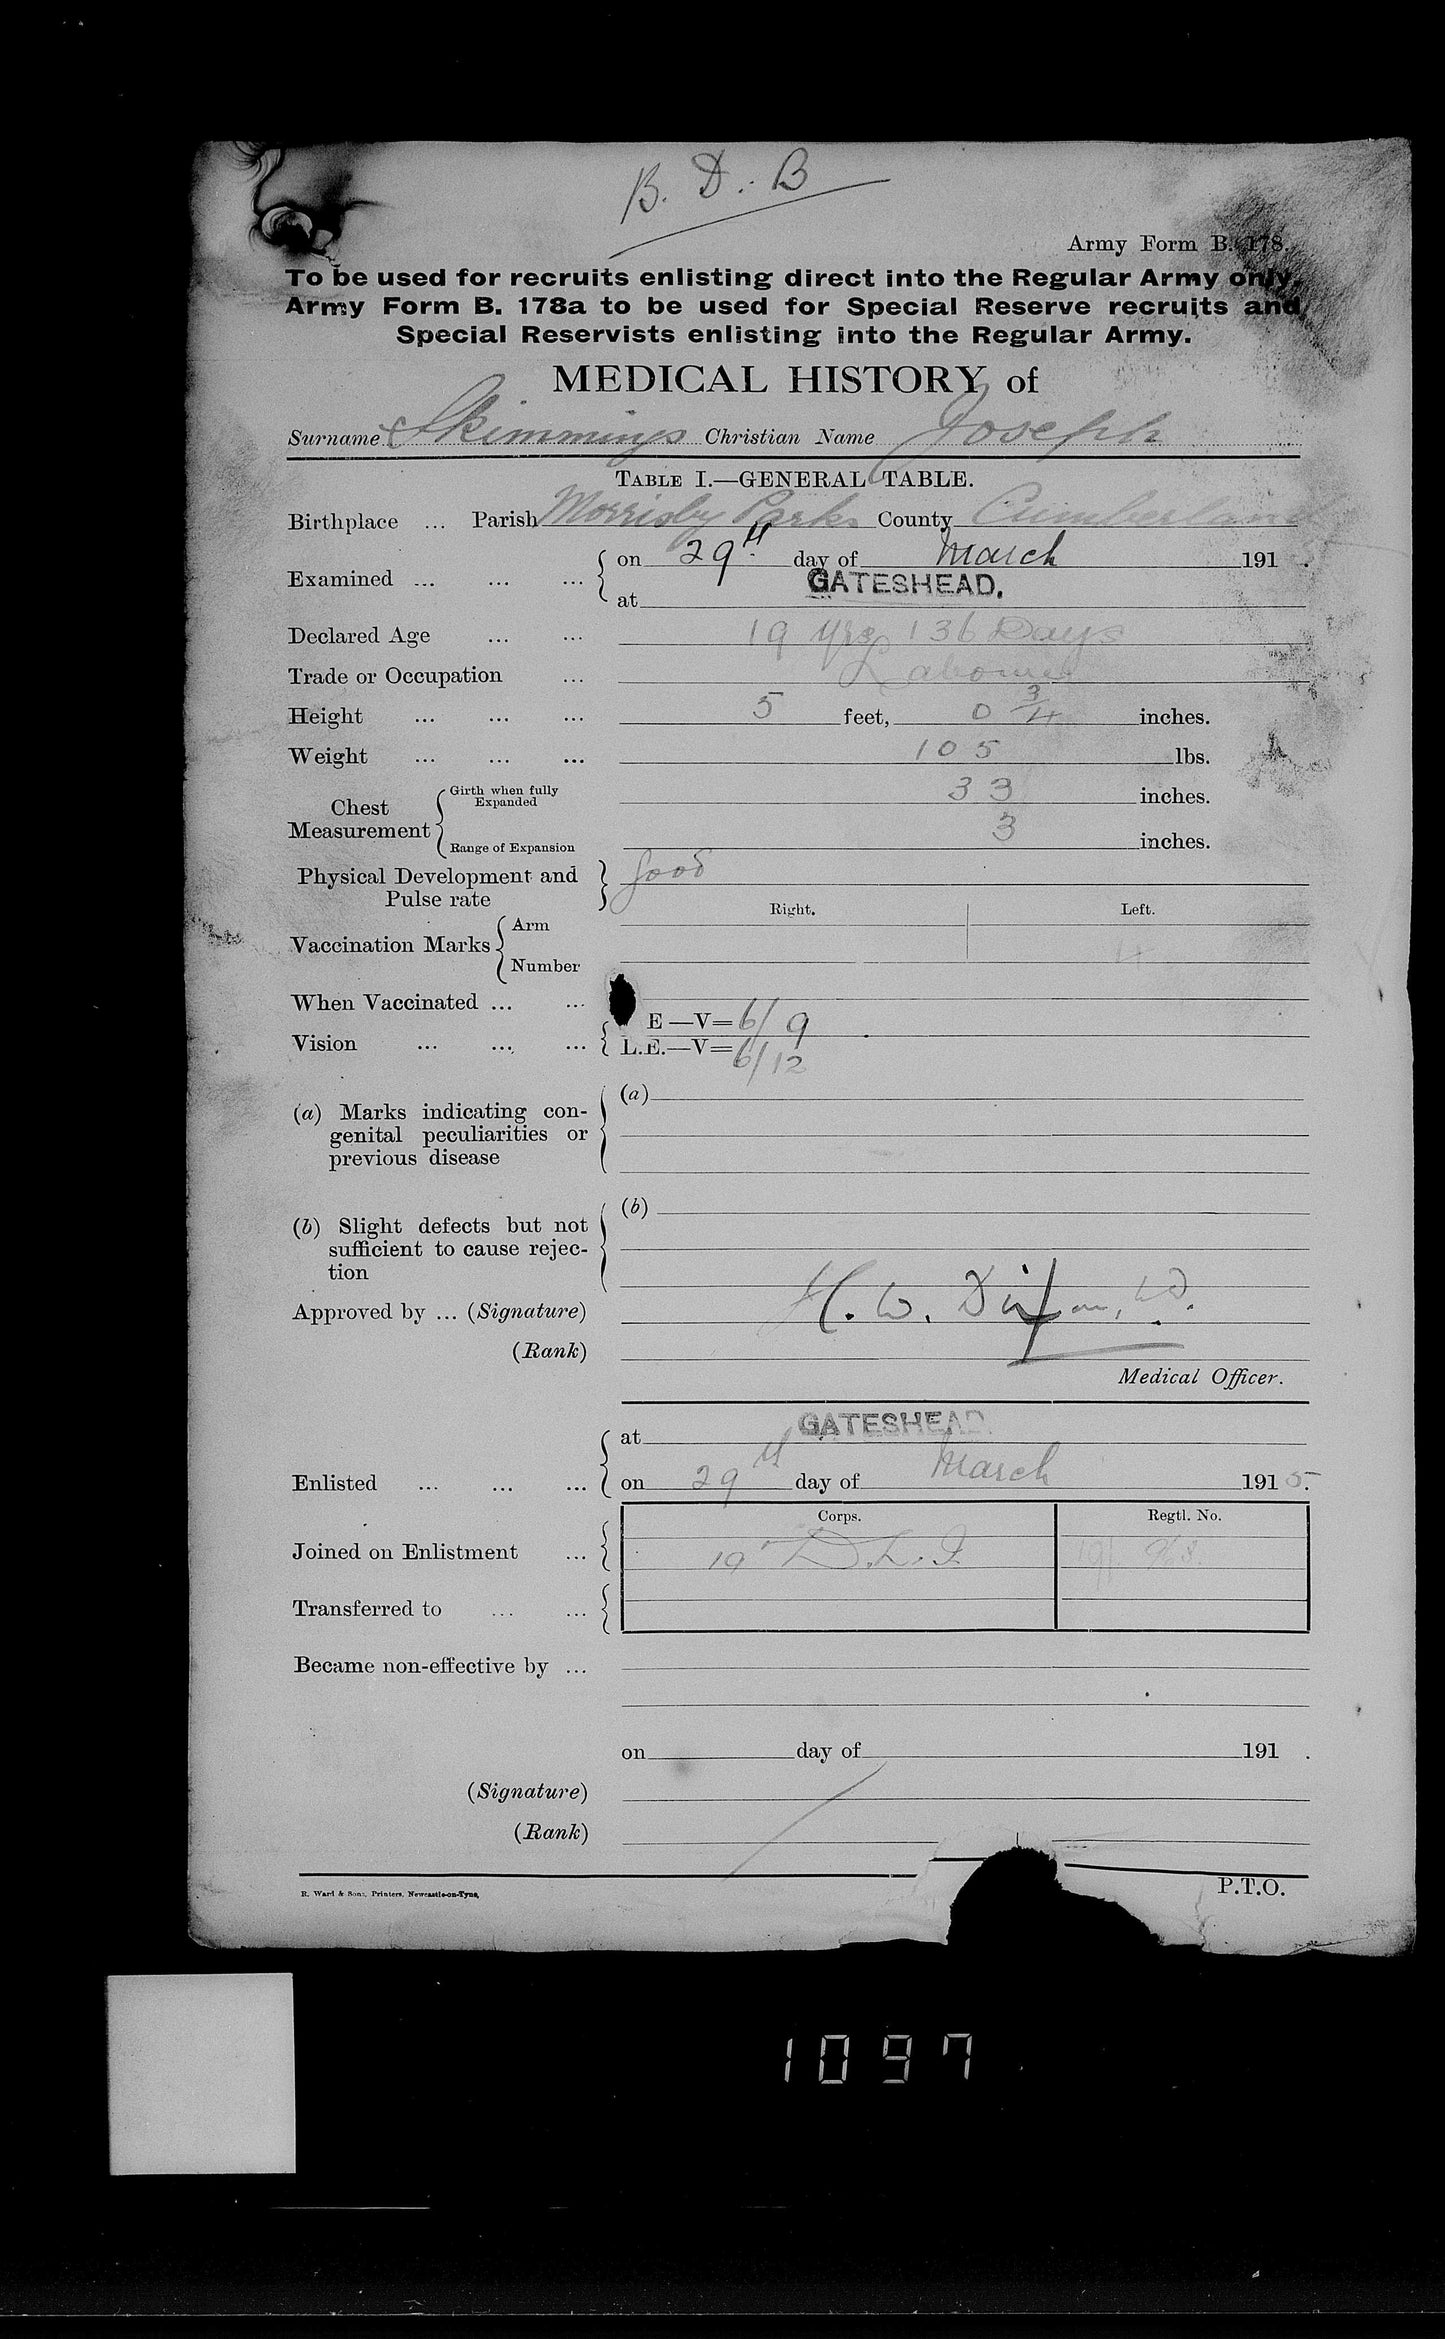 B. D. B
Army Form B. 178.
To be used for recruits enlisting direct into the Regular Army only.
Army Form B. 178a to be used for Special Reserve recruits and
Special Reservists enlisting into the Regular Army.
MEDICAL HISTORY of
Surname Skimmings Christian Name Joseph
TABLE I.—GENERAL TABLE.
Birthplace ... Parish Parks County Cumberland
Examined ... ... ... on 29th day of March 191 .
at GATESHEAD.
Declared Age ... ... 19 yrs 136 Days
Trade or Occupation ... Labourer
Height ... ... ... 5 feet, 0 3/4 inches.
Weight ... ... ... 105 lbs.
Chest Measurement Girth when fully Expanded 33 inches.
Range of Expansion 3 inches.
Physical Development and Pulse rate good
Right. Left.
Vaccination Marks Arm
Number 4
When Vaccinated ... ...
Vision ... ... ... E—V= 6/9
L.E.—V= 6/12
(a) Marks indicating con-
genital peculiarities or
previous disease
(a)
(b) Slight defects but not
sufficient to cause rejec-
tion
(b)
Approved by ... (Signature) H. W. Dixon,
(Rank)
Medical Officer.
Enlisted ... ... ... at GATESHEAD
on 29th day of March 1915.
Corps. Regtl. No.
Joined on Enlistment ... 19 D.L.I.
Transferred to ... ...
Became non-effective by ...
on day of 191 .
(Signature)
(Rank)
R. Ward & Sons, Printers, Newcastle-on-Tyne,
P.T.O.
1097